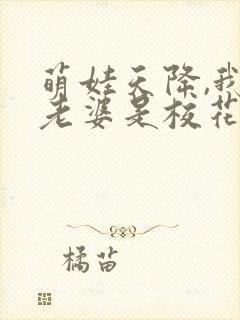 萌娃天降,我
老婆是校花
橘苗